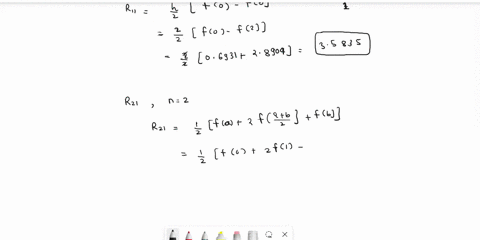 R₁₁ = h/2 [ f(0) - f(0)
= 2/2 [ f(0) - f(2) ]
= 2/2 [ 0.6931 + 2.8904 ] = 3.5835
R₂₁ , n=2
R₂₁ = 1/2 [ f(a) + 2 f( a+b/2 ] + f(b) ]
= 1/2 [ f(0) + 2f(1) -